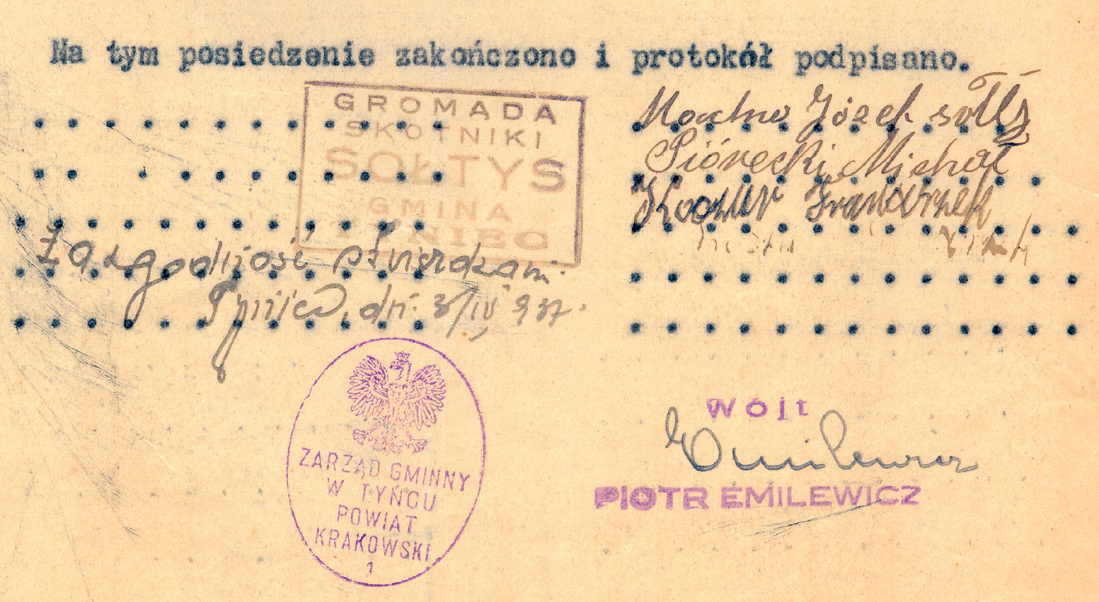 Na tym posiedzenie zakończono i protokół podpisano.
GROMADA
SKOTNIKI
SOŁTYS
GMINA
TYNIEC
Józef sołtys
Piórecki Michał
Franciszek
Za zgodność stwierdzam:
Tyniec, dn. 3/IV 937.
ZARZĄD GMINNY
W TYŃCU
POWIAT
KRAKOWSKI
1
Wójt
Emilewicz
PIOTR EMILEWICZ